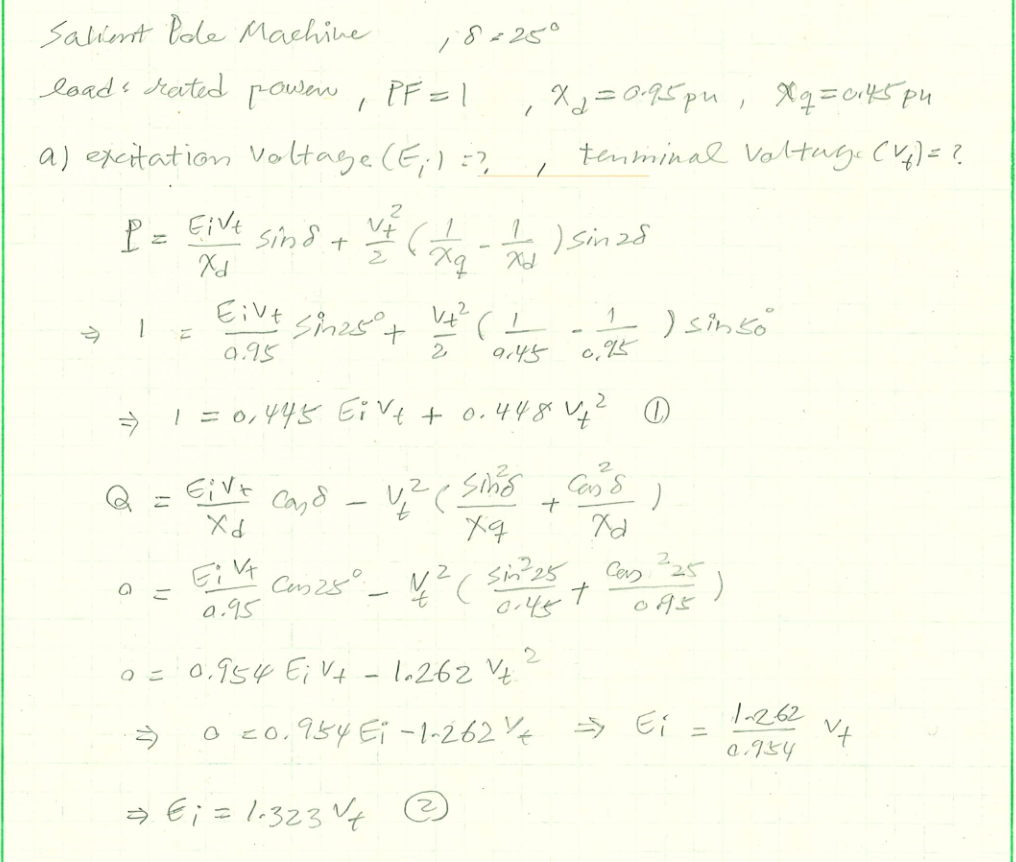 Salient Pole Machine , δ = 25°
load: rated power , PF = 1 , X_d = 0.95 pu , X_q = 0.45 pu
a) excitation Voltage (E_i) = ? , terminal Voltage (V_t) = ?
P = E_i V_t / X_d sin δ + V_t² / 2 ( 1 / X_q - 1 / X_d ) sin 2δ
⇒ 1 = E_i V_t / 0.95 sin 25° + V_t² / 2 ( 1 / 0.45 - 1 / 0.95 ) sin 50°
⇒ 1 = 0.445 E_i V_t + 0.448 V_t² ①
Q = E_i V_t / X_d Cos δ - V_t² ( sin² δ / X_q + Cos² δ / X_d )
0 = E_i V_t / 0.95 Cos 25° - V_t² ( sin² 25 / 0.45 + Cos² 25 / 0.95 )
0 = 0.954 E_i V_t - 1.262 V_t²
⇒ 0 = 0.954 E_i - 1.262 V_t ⇒ E_i = 1.262 / 0.954 V_t
⇒ E_i = 1.323 V_t ②